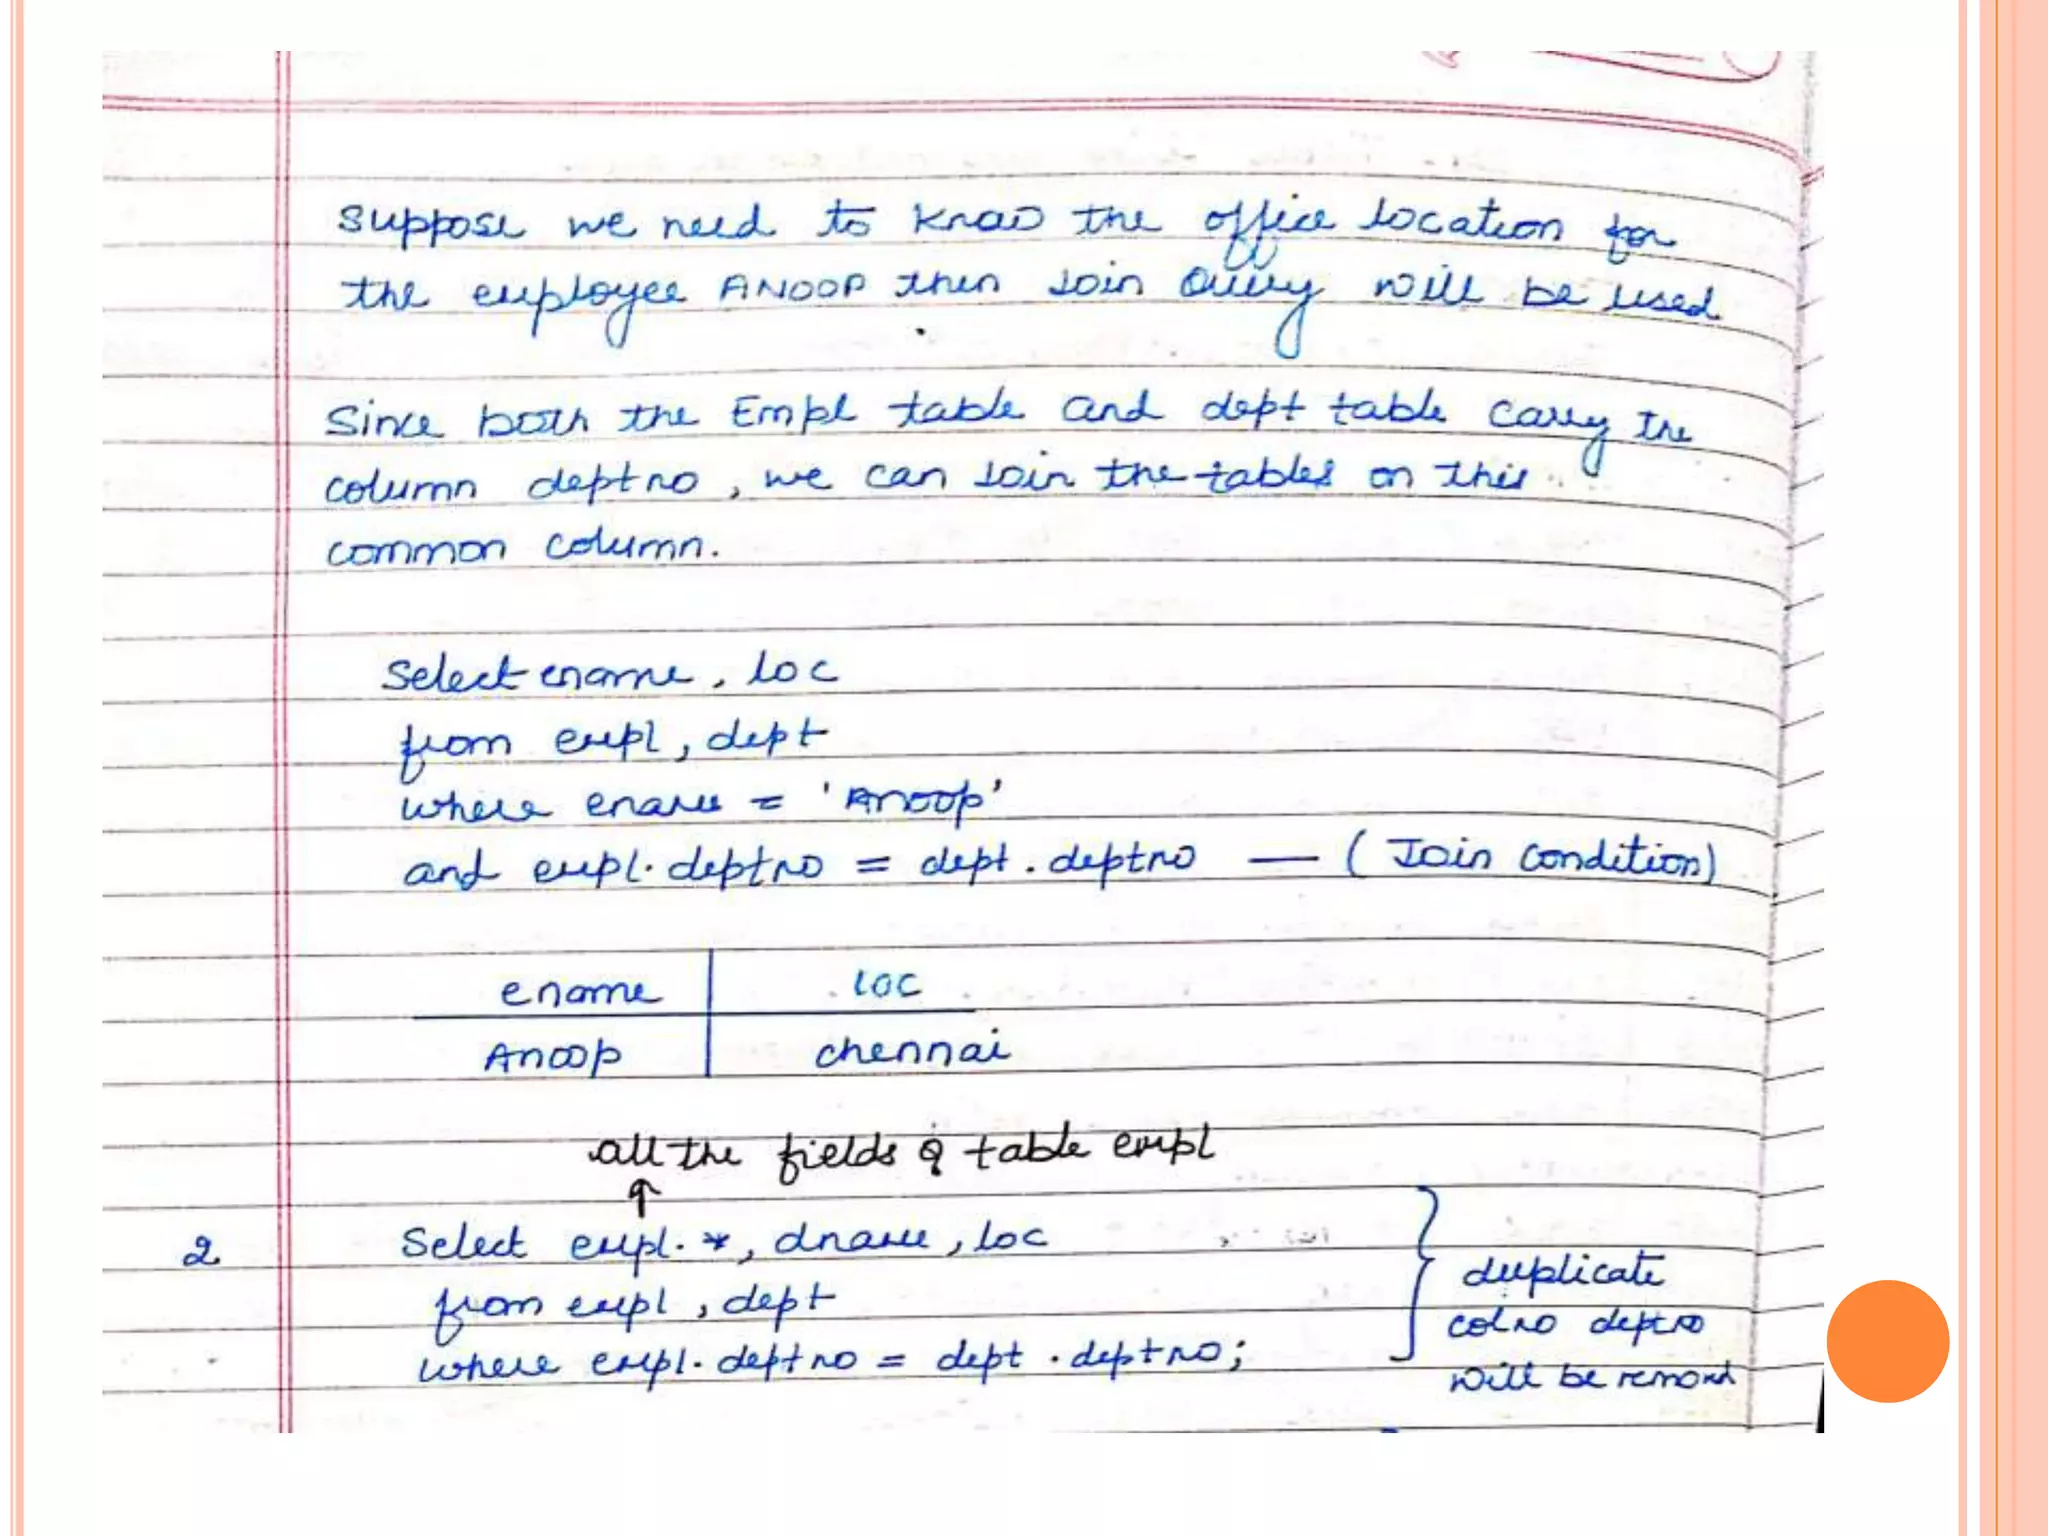 Suppose we need to know the office location for
the employee ANOOP then Join Query will be used
Since both the Empl table and dept table carry the
column deptno, we can join the tables on this
common column.
Select ename, loc
from empl, dept
where ename = 'Anoop'
and empl.deptno = dept.deptno — (Join condition)
ename loc
Anoop chennai
all the fields of table empl
↑
2 Select empl.*, dname, loc
from empl, dept
where empl.deptno = dept.deptno;
duplicate
colno deptno
will be removed